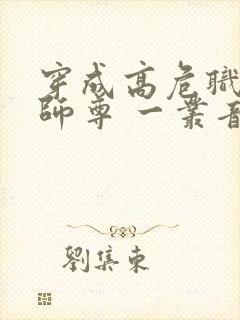 穿成高危職
師尊 一叢音
劉集東